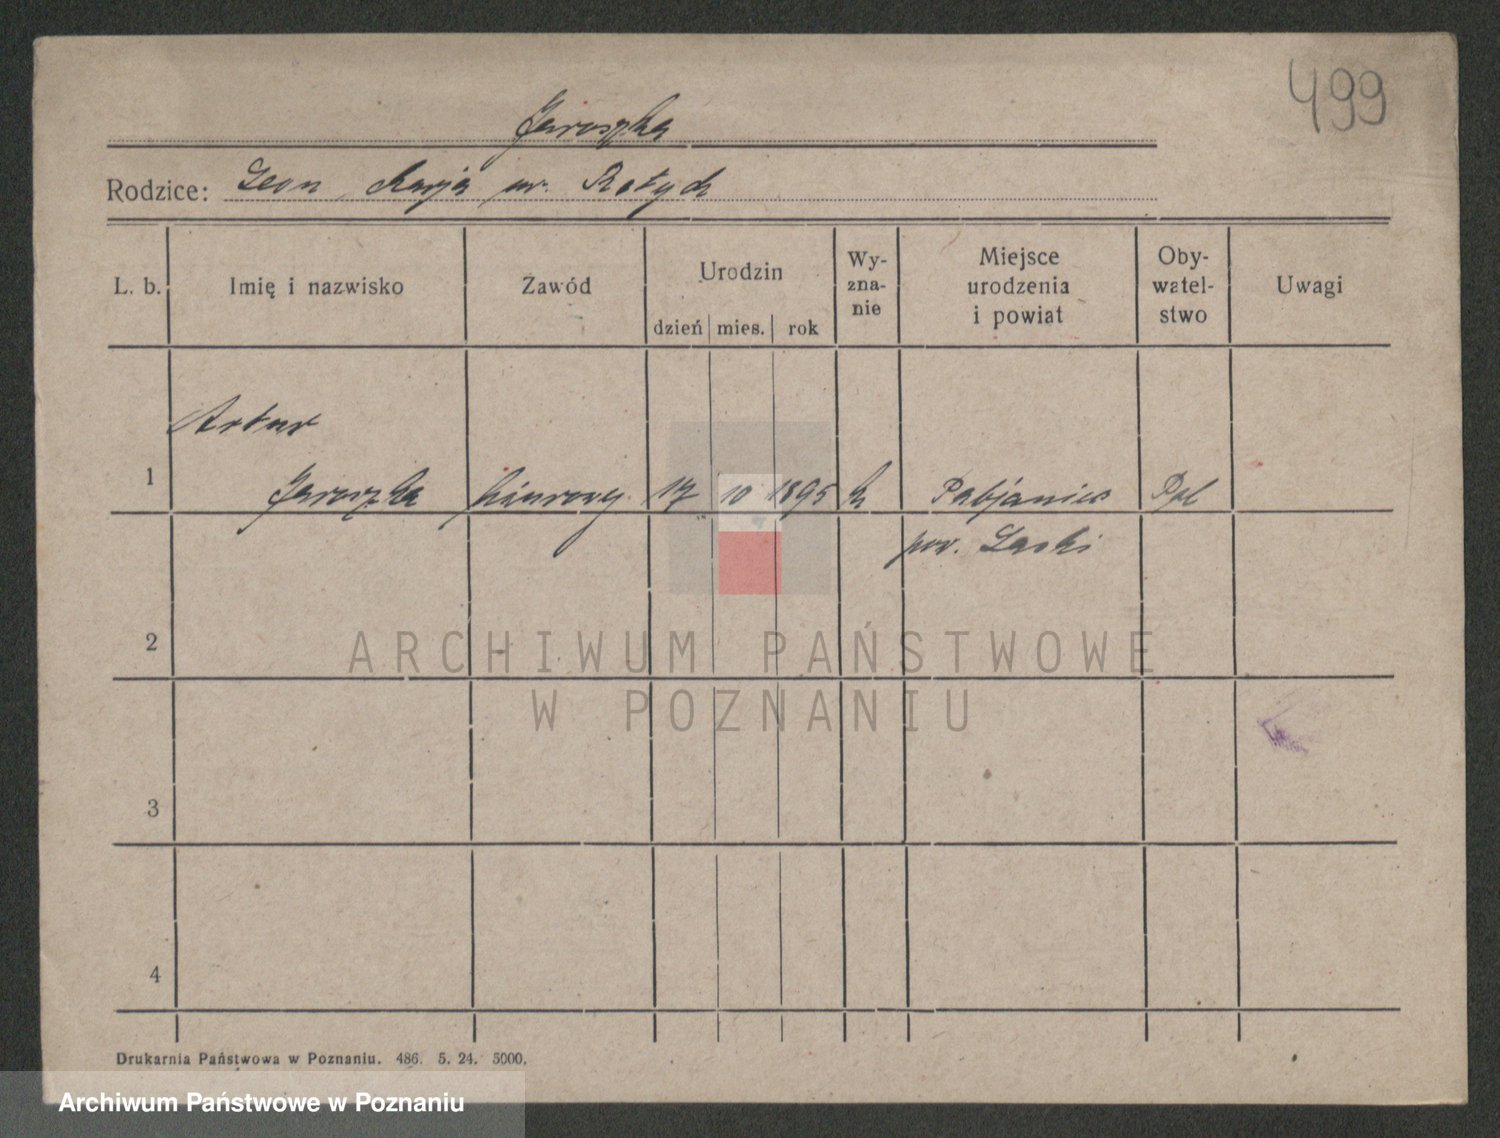 499
Jaroszka
Rodzice: Leon, Marja ur. Ratych
L. b. Imię i nazwisko Zawód Urodzin dzień mies. rok Wy-zna-nie Miejsce urodzenia i powiat Oby-watel-stwo Uwagi
Artur
1 Jaroszka 17 10 1895 Pabjanice Pol
pow. Łaski
2
ARCHIWUM PAŃSTWOWE
W POZNANIU
3
4
Drukarnia Państwowa w Poznaniu. 486. 5. 24. 5000.
Archiwum Państwowe w Poznaniu